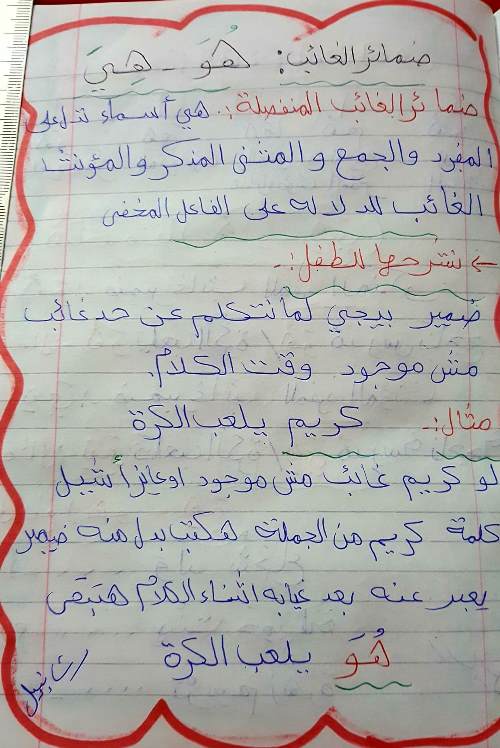 ضمائر الغائب: هُوَ - هِيَ
ضمائر الغائب المنفصلة: هي أسماء تدل على
المفرد والجمع والمثنى المذكر والمؤنث
الغائب للدلالة على الفاعل المخفى
← نشرحها للطفل:-
ضمير بيجي لما نتكلم عن حد غائب
مش موجود وقت الكلام.
مثال:- كريم يلعب الكرة
لو كريم غائب مش موجود او عايز أشيل
كلمة كريم من الجملة هكتب بدل منه ضمير
يعبر عنه بعد غيابه اثناء الكلام هتبقى
هُوَ يلعب الكرة